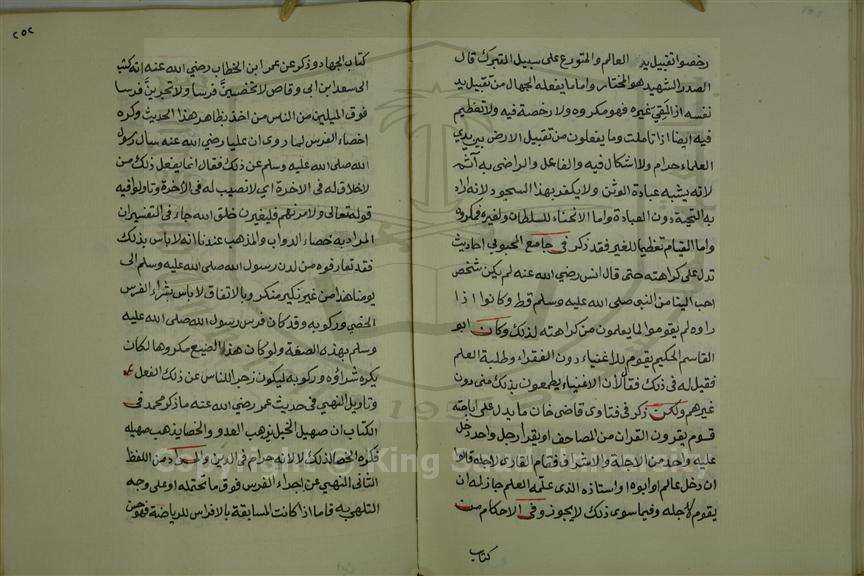 رخصوا تقبيل يد العالم والمتورع على سبيل التبرك قال
الصدر الشهيد هو المختار واما ما يفعله الجهال من تقبيل يد
نفسه اذا لقي غيره فهو مكروه ولا رخصة فيه ولا تعظيم
فيه ايضا اذا تاملت وما يفعلون من تقبيل الارض بين يدي
العلماء حرام ولا اشكال فيه والفاعل والراضي به آثم
لانه يشبه عبادة الوثن ولا يكفر بهذا السجود لانه اراد
به التحية دون العبادة واما الانحناء للسلطان ولغيره فمكروه
واما القيام تعظيما للغير فقد ذكر في جامع المحبوبي احاديث
تدل على كراهته حتى قال انس رضي الله عنه لم يكن شخص
احب الينا من النبي صلى الله عليه وسلم قط وكانوا اذا
راوه لم يقوموا لما يعلمون من كراهته لذلك وكان ابو
القاسم الحكيم يقوم للاغنياء دون الفقراء وطلبة العلم
فقيل له في ذلك فقال لان الاغنياء يطمعون بذلك مني دون
غيرهم ولكن ذكر في فتاوى قاضي خان ما يدل على اباحته
قوم يقرون القران من المصاحف او يقرا رجل واحد دخل
عليه واحد من الاجلة والاشراف فقام القارئ لاجله قالوا
ان دخل عالم او ابوه او استاذه الذي علمه العلم جاز له ان
يقوم لاجله وفيما سوى ذلك لا يجوز وفي الاحكام من
كتاب
٢٥٢
كتاب الجهاد وذكر عن عمر ابن الخطاب رضي الله عنه انه كتب
الى سعد ابن ابي وقاص لا تخصين فرسا ولا تجرين فرسا
فوق الميلين من الناس من اخذ بظاهر هذا الحديث وكره
اخصاء الفرس لما روى ان عليا رضي الله عنه سال رسول
الله صلى الله عليه وسلم عن ذلك فقال انما يفعل ذلك من
لا خلاق له في الاخرة اي لا نصيب له في الآخرة وتاولوا فيه
قوله تعالى ولآمرنهم فليغيرن خلق الله جاء في التفسير ان
المراد به خصاء الدواب والمذهب عندنا انه لا باس بذلك
فقد تعارفوه من لدن رسول الله صلى الله عليه وسلم الى
يومنا هذا من غير نكير منكر وبالاتفاق لا باس بشراء الفرس
الخصي وركوبه وقد كان فرس رسول الله صلى الله عليه
وسلم بهذه الصفة ولو كان هذا الصنيع مكروها لكان
يكره شراؤه وركوبه ليكون زجرا للناس عن ذلك الفعل
وتاويل النهي في حديث عمر رضي الله عنه ما ذكر محمد في
الكتاب ان صهيل الخيل يرهب العدو والخصا يذهب صهيله
فكره الخصا لذلك لا لانه حرام في الدين والمراد من اللفظ
الثاني النهي عن اجراء الفرس فوق ما تحتمله او على وجه
التلهي به فاما اذا كانت المسابقة بالافراس للرياضة فهو حسن
Copyright © King Saud University